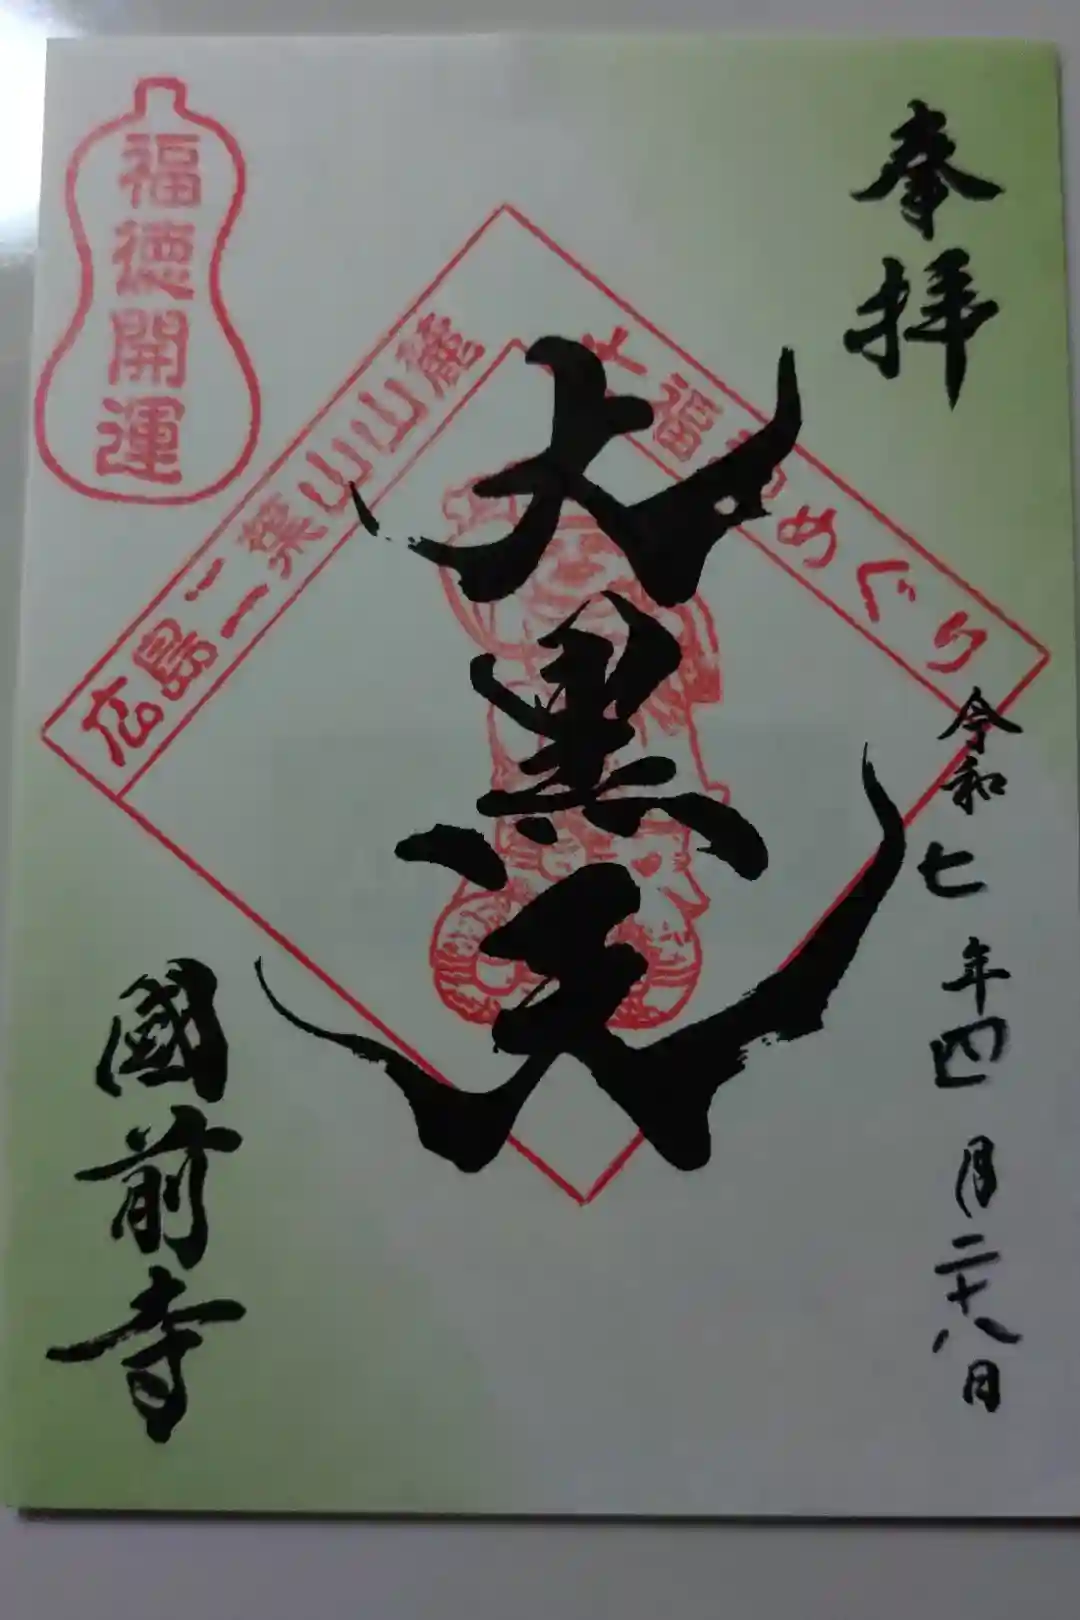 奉拝
令和七年四月二十八日
大黒天
七福神めぐり
広島二葉山山麓
福徳開運
國前寺